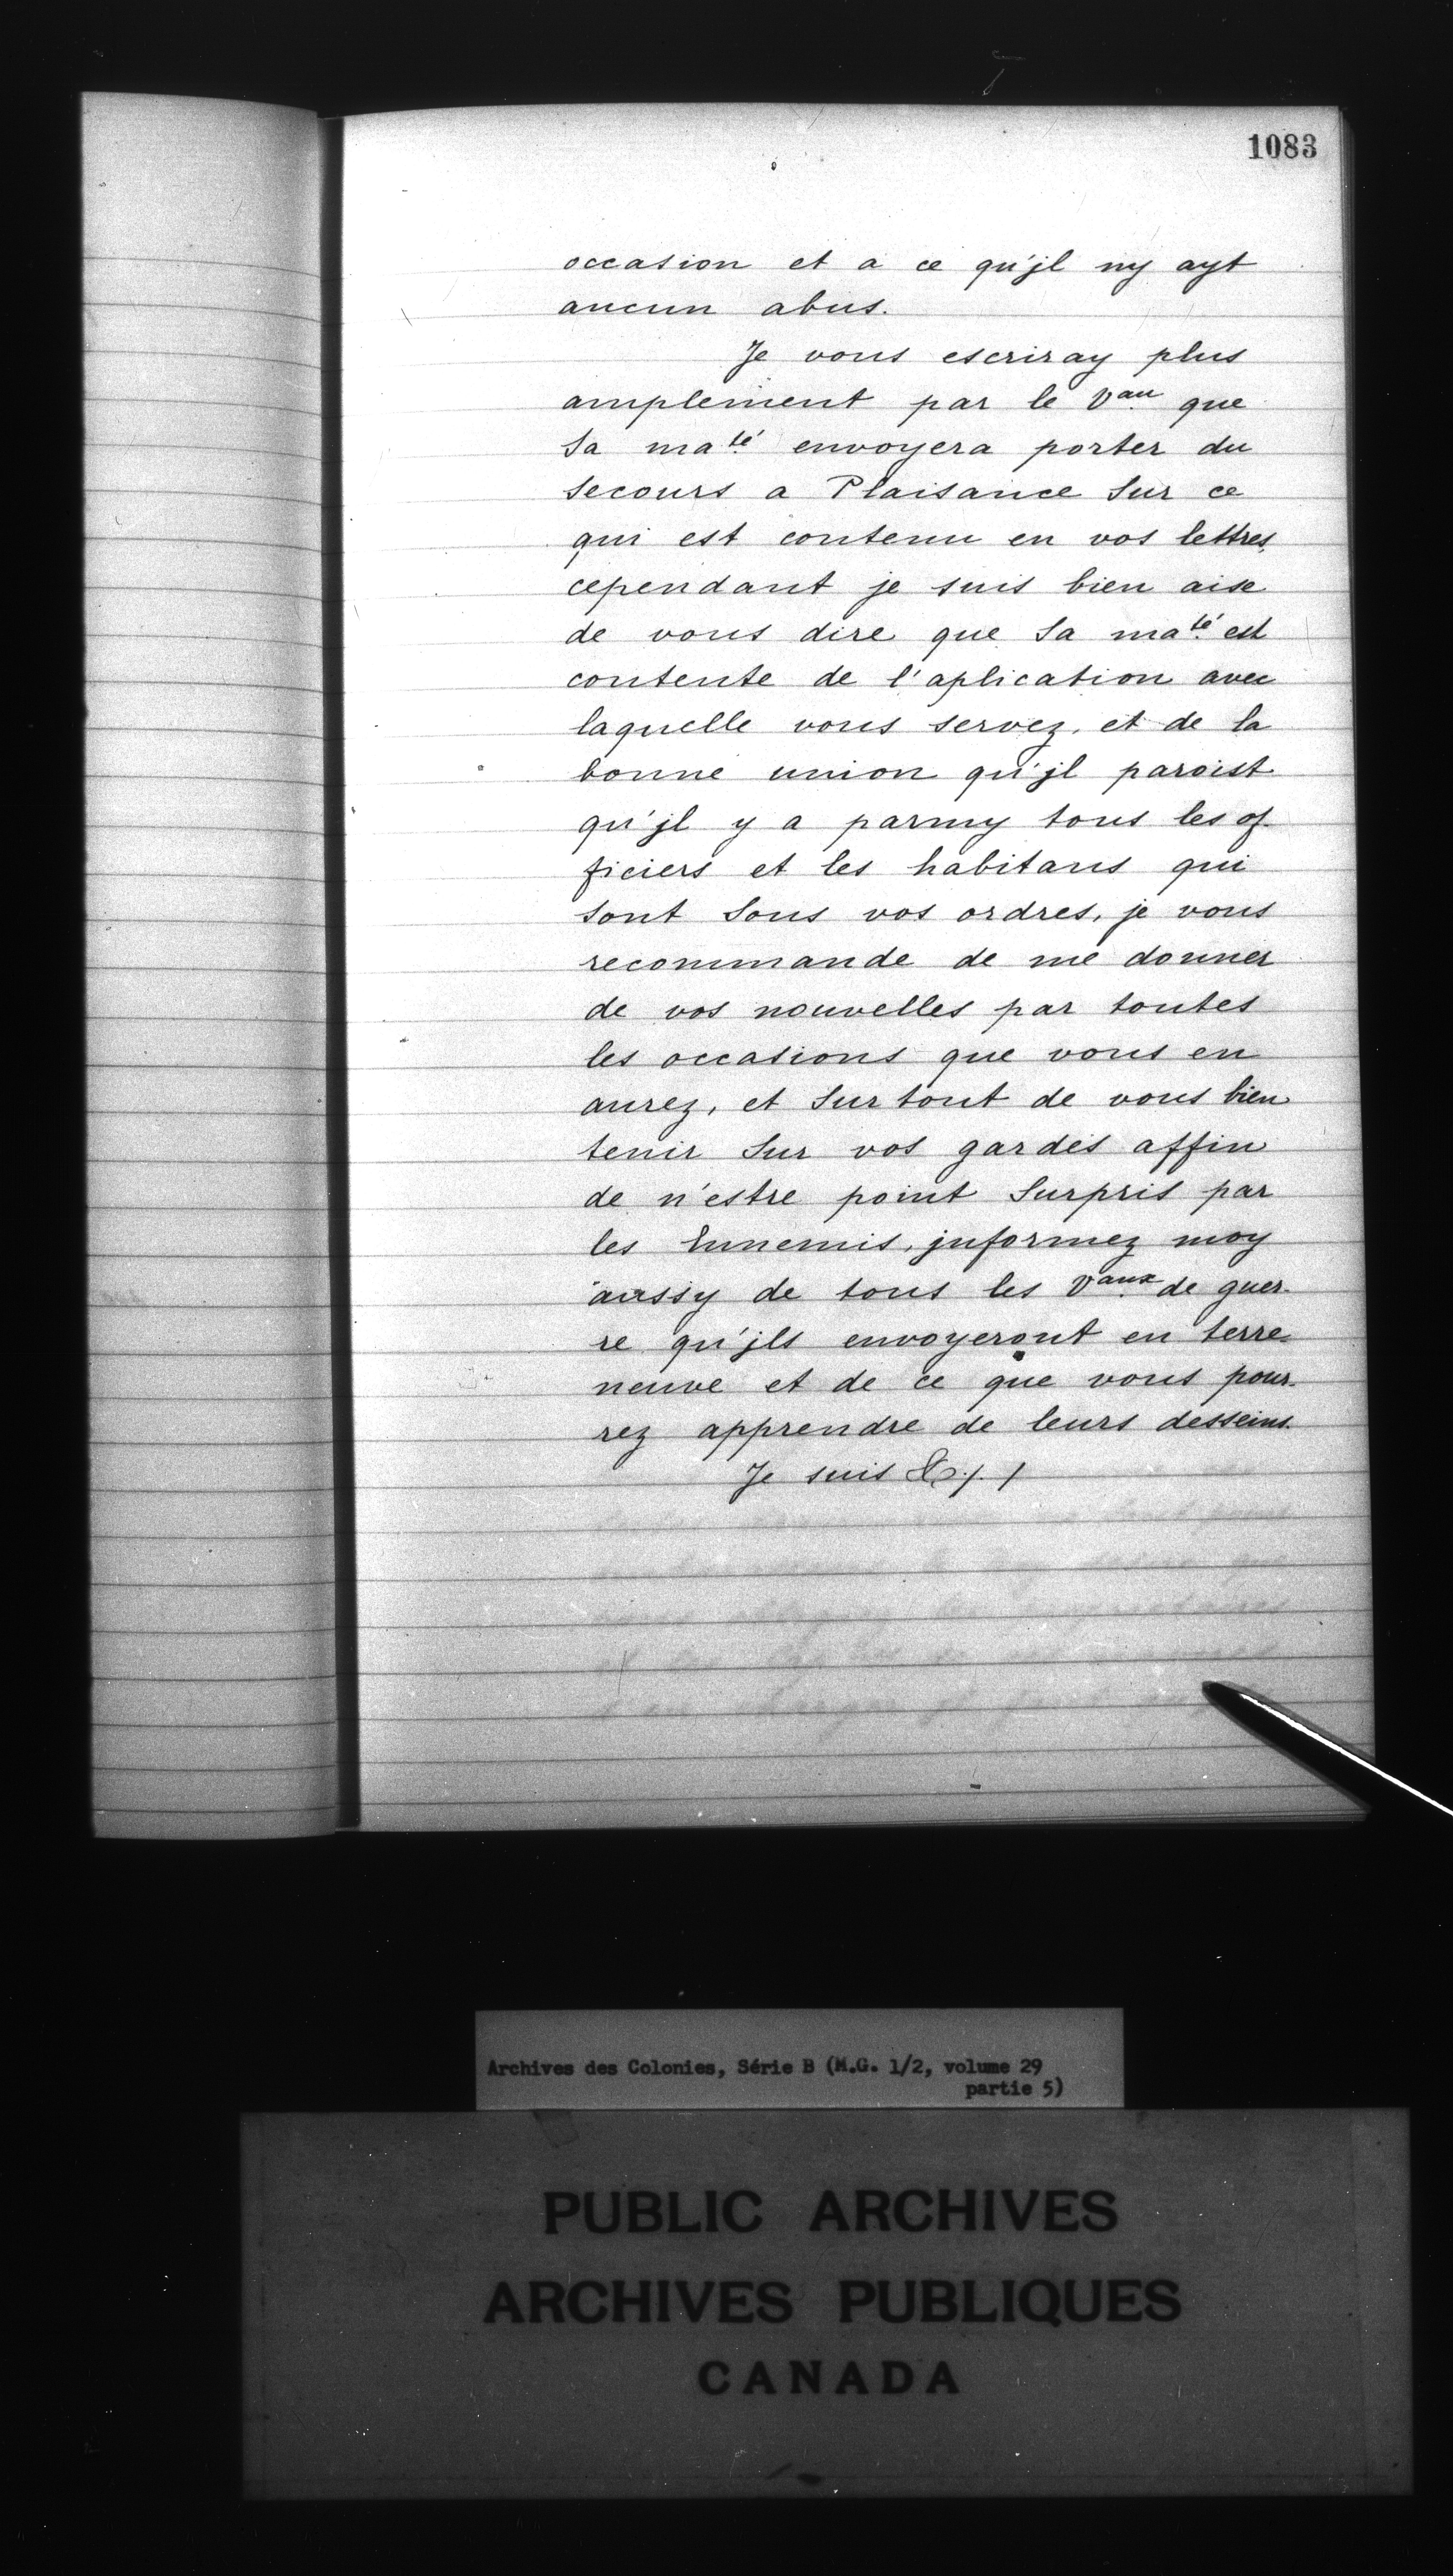 1083
occasion et a ce qu'jl ny ayt
aucun abus.
Je vous escriray plus
amplement par le Vau que
Sa maté envoyera porter du
secours a Plaisance Sur ce
qui est contenu en vos lettres,
cependant je suis bien aise
de vous dire que Sa maté est
contente de l'aplication avec
laquelle vous servez, et de la
bonne union qu'jl paroist
qu'jl y a parmy tous les of-
ficiers et les habitans qui
sont Sous vos ordres, je vous
recommande de me donner
de vos nouvelles par toutes
les occasions que vous en
aurez, et Surtout de vous bien
tenir Sur vos gardes affin
de n'estre point Surpris par
les Ennemis, jnformez moy
aussy de tous les Vaux de guer-
re qu'jls envoyeront en terre-
neuve et de ce que vous pour-
rez apprendre de leurs desseins.
Je suis &./. /
Archives des Colonies, Série B (M.G. 1/2, volume 29
partie 5)
PUBLIC ARCHIVES
ARCHIVES PUBLIQUES
CANADA